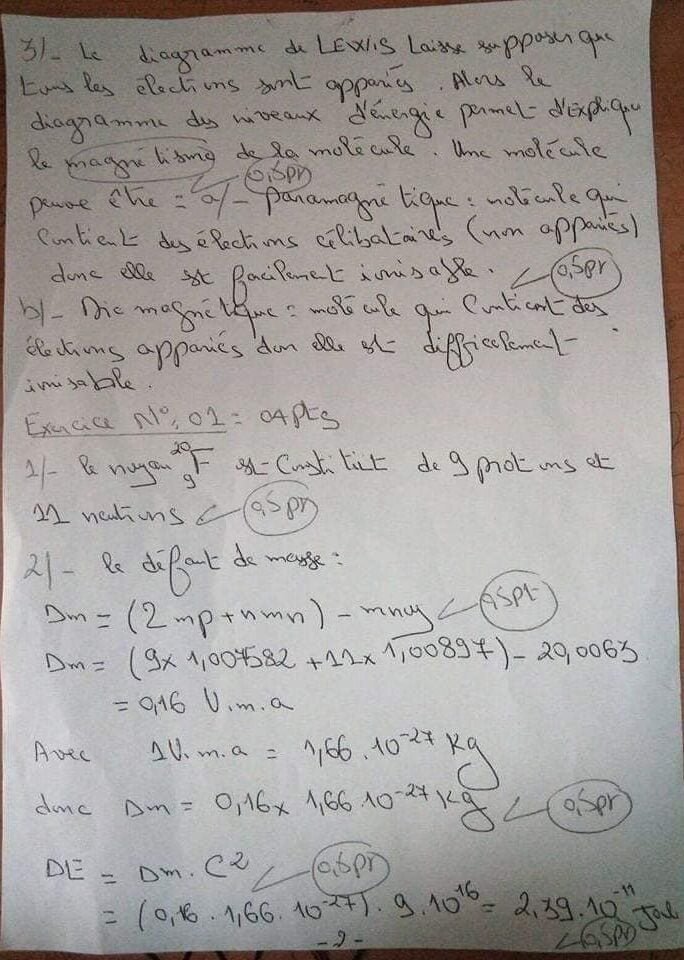 3/- Le diagramme de LEWIS Laisse supposer que
tous les élections sont appariés. Alors le
diagramme des niveaux d'énergie permet d'Explique
le magnétisme de la molécule. Une molécule
0,5pr
peuve être = a/- paramagnétique : molécule qui
Contient des élections célibataires (non appariés)
donc elle est facilement ionisable.
0,5pr
b/- Diamagnétique : molécule qui Contient des
élections appariés don elle est difficelement
ionisable.
Exercice N°: 01 = 04pts
1/- le noyau 20 9 F est Constitiet de 9 protons et
11 neutions 0,5pr
2/- le défaut de masse :
Dm = (2mp + nmn) - mnoy 0,5pt
Dm = (9x 1,007582 + 11x 1,00897) - 20,0063
= 0,16 U.m.a
Avec 1U.m.a = 1,66.10⁻²⁷ Kg
donc Dm = 0,16x 1,66.10⁻²⁷ Kg 0,5pr
DE = Dm.C² 0,5pr
= (0,16.1,66.10⁻²⁷).9.10¹⁶ = 2,39.10⁻¹¹ Joul
-2- 0,5pr